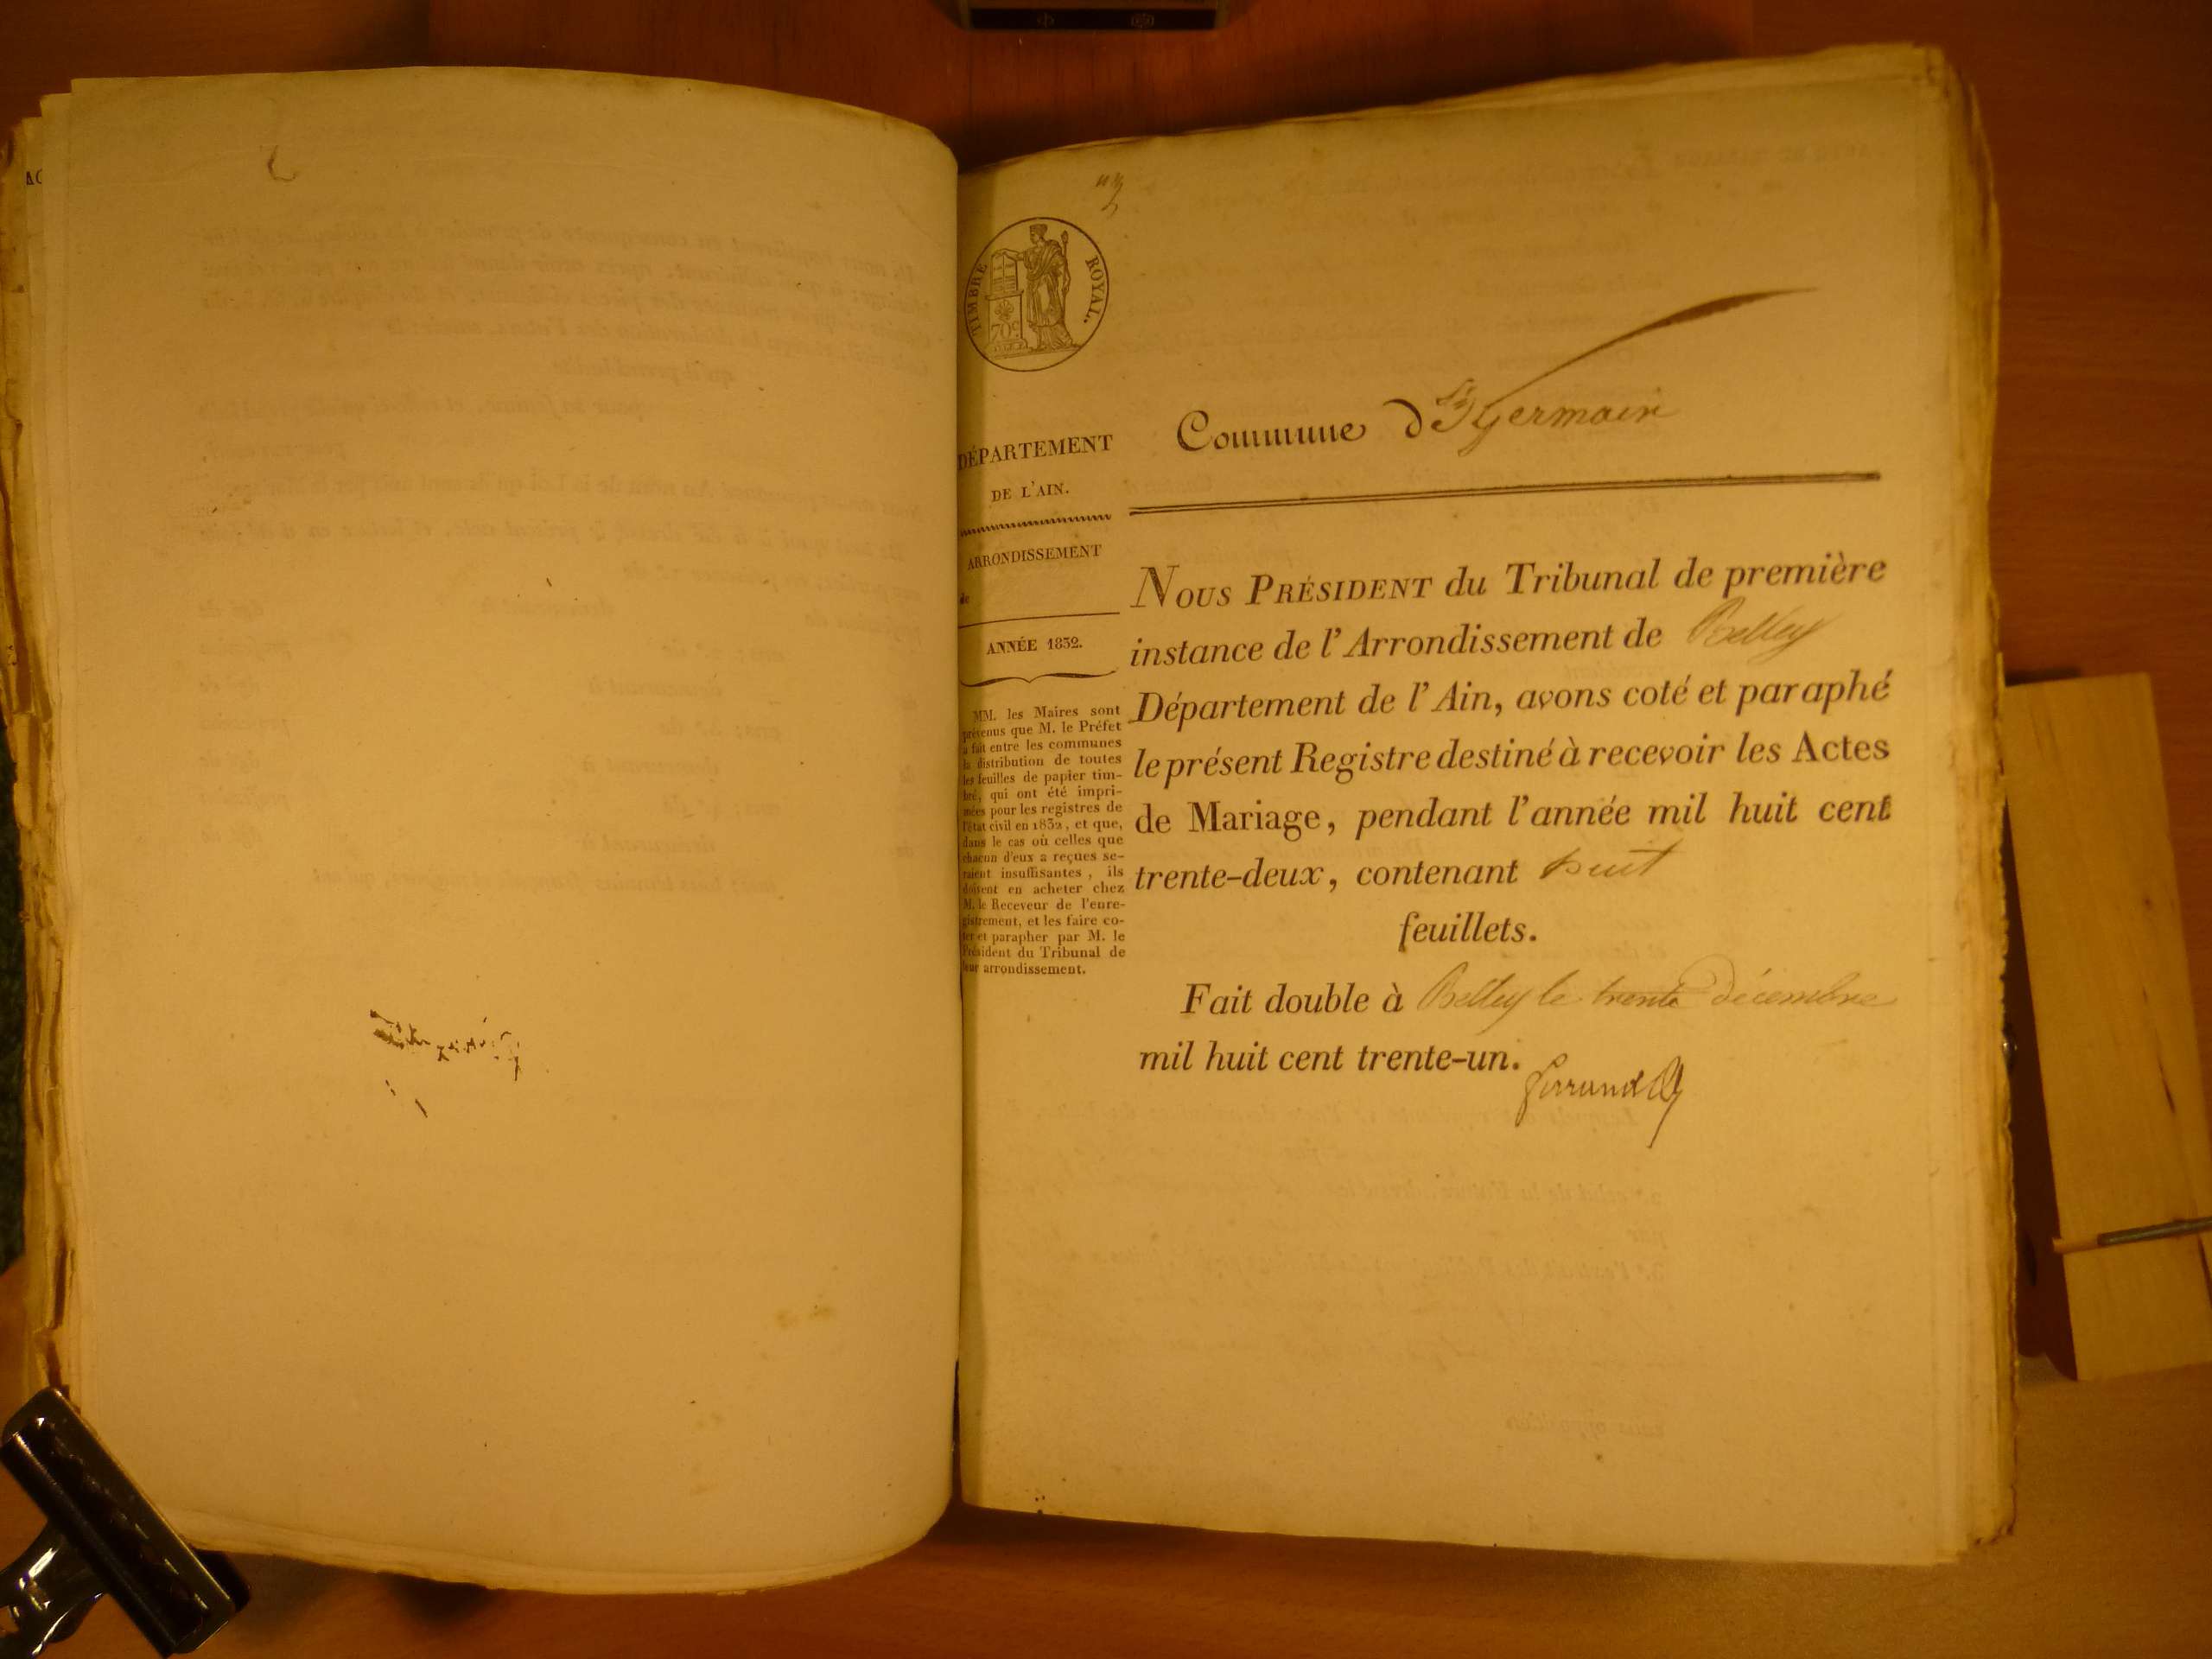 AC
TIMBRE ROYAL.
70c
DÉPARTEMENT
DE L'AIN.
ARRONDISSEMENT
de
ANNÉE 1832.
MM. les Maires sont
prévenus que M. le Préfet
a fait entre les communes
la distribution de toutes
les feuilles de papier tim-
bré, qui ont été impri-
mées pour les registres de
l'état civil en 1832, et que,
dans le cas où celles que
chacun d'eux a reçues se-
raient insuffisantes, ils
doivent en acheter chez
M. le Receveur de l'enre-
gistrement, et les faire co-
ter et parapher par M. le
Président du Tribunal de
leur arrondissement.
Commune d St Germain
NOUS PRÉSIDENT du Tribunal de première
instance de l'Arrondissement de Belley
Département de l'Ain, avons coté et paraphé
le présent Registre destiné à recevoir les Actes
de Mariage, pendant l'année mil huit cent
trente-deux, contenant huit
feuillets.
Fait double à Belley le trente décembre
mil huit cent trente-un.